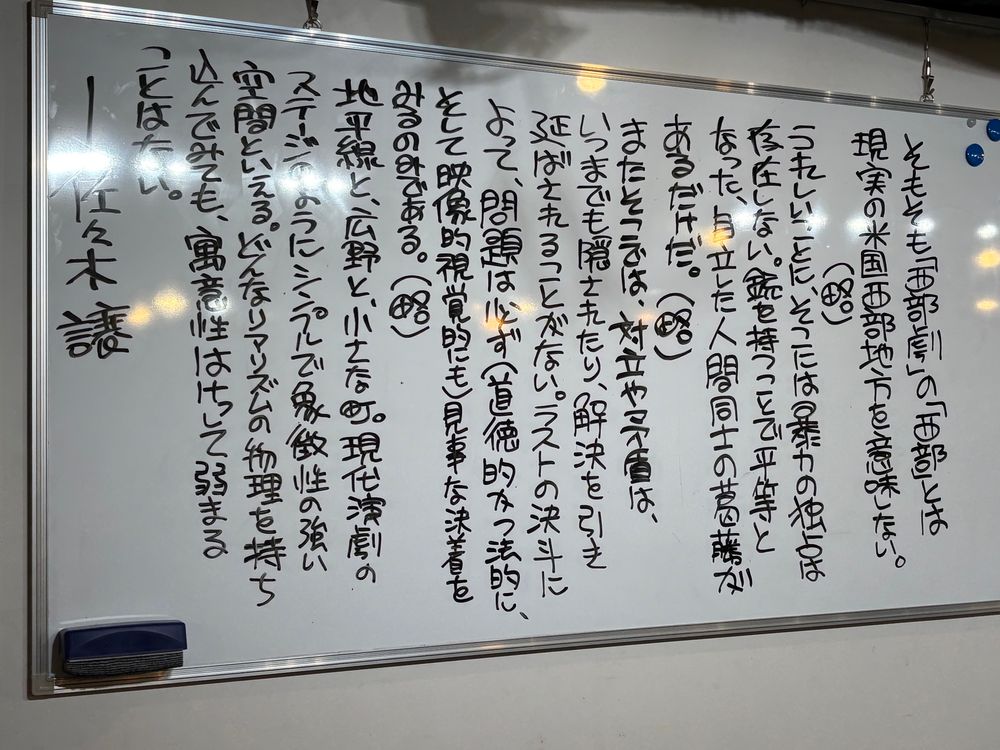 そもそも「西部劇」の「西部」とは
現実の米国西部地方を意味しない。
（略）
うれしいことに、そこには暴力の独占は
存在しない。銃を持つことで平等と
なった、自立した人間同士の葛藤が
あるだけだ。（略）
またそこでは、対立や矛盾は、
いつまでも隠されたり、解決を引き
延ばされることがない。ラストの決斗に
よって、問題は必ず（道徳的かつ法的に、
そして映像的視覚的にも）見事な決着を
みるのみである。（略）
地平線と、広野と、小さな町。現代演劇の
ステージのようにシンプルで象徴性の強い
空間といえる。どんなリアリズムの物理を持ち
込んでみても、寓意性はけっして弱まる
ことはない。
──佐々木 譲